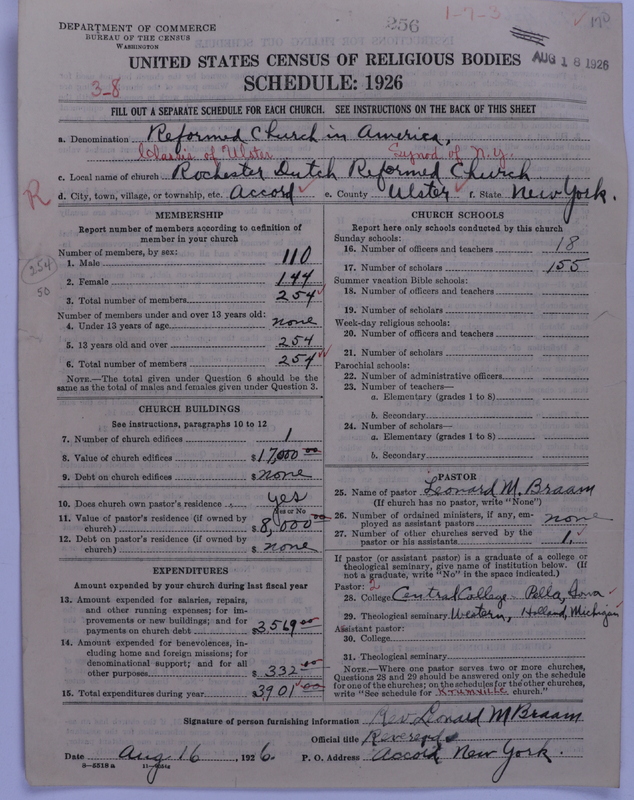 DEPARTMENT OF COMMERCE
BUREAU OF THE CENSUS
WASHINGTON
256
1-7-3
AUG 18 1926
UNITED STATES CENSUS OF RELIGIOUS BODIES
SCHEDULE: 1926
3-8
FILL OUT A SEPARATE SCHEDULE FOR EACH CHURCH. SEE INSTRUCTIONS ON THE BACK OF THIS SHEET
a. Denomination Reformed Church in America,
Classis of Ulster Synod of N.Y.
c. Local name of church Rochester Dutch Reformed Church
R
d. City, town, village, or township, etc. Accord e. County Ulster f. State New York.
MEMBERSHIP
Report number of members according to definition of
member in your church
Number of members, by sex:
1. Male 110
2. Female 144
3. Total number of members 254
254
50
Number of members under and over 13 years old:
4. Under 13 years of age none
5. 13 years old and over 254
6. Total number of members 254
NOTE.—The total given under Question 6 should be the
same as the total of males and females given under Question 3.
CHURCH BUILDINGS
See instructions, paragraphs 10 to 12
7. Number of church edifices 1
8. Value of church edifices $17,000 00
9. Debt on church edifices $none
10. Does church own pastor's residence yes
Yes or No
11. Value of pastor's residence (if owned by
church) $8,000 00
12. Debt on pastor's residence (if owned by
church) $ none
EXPENDITURES
Amount expended by your church during last fiscal year
13. Amount expended for salaries, repairs,
and other running expenses; for im-
provements or new buildings; and for
payments on church debt $3569 00
14. Amount expended for benevolences, in-
cluding home and foreign missions; for
denominational support; and for all
other purposes $ 332 00
15. Total expenditures during year $3901 00
CHURCH SCHOOLS
Report here only schools conducted by this church
Sunday schools:
16. Number of officers and teachers 18
17. Number of scholars 155
Summer vacation Bible schools:
18. Number of officers and teachers
19. Number of scholars
Week-day religious schools:
20. Number of officers and teachers
21. Number of scholars
Parochial schools:
22. Number of administrative officers
23. Number of teachers—
a. Elementary (grades 1 to 8)
b. Secondary
24. Number of scholars—
a. Elementary (grades 1 to 8)
b. Secondary
PASTOR
25. Name of pastor Leonard M. Braam
(If church has no pastor, write "None")
26. Number of ordained ministers, if any, em-
ployed as assistant pastors none
27. Number of other churches served by the
pastor or his assistants 1.
If pastor (or assistant pastor) is a graduate of a college or
theological seminary, give name of institution below. (If
not a graduate, write "No" in the space indicated.)
Pastor: 2
28. College Central College Pella, Iowa
29. Theological seminary Western, Holland, Michigan
Assistant pastor:
30. College
31. Theological seminary
NOTE.—Where one pastor serves two or more churches,
Questions 28 and 29 should be answered only on the schedule
for one of the churches; on the schedules for the other churches,
write "See schedule for Krumville church."
Signature of person furnishing information Rev. Leonard M Braam
Official title Reverend
Date Aug 16, 1926. P. O. Address Accord New York.